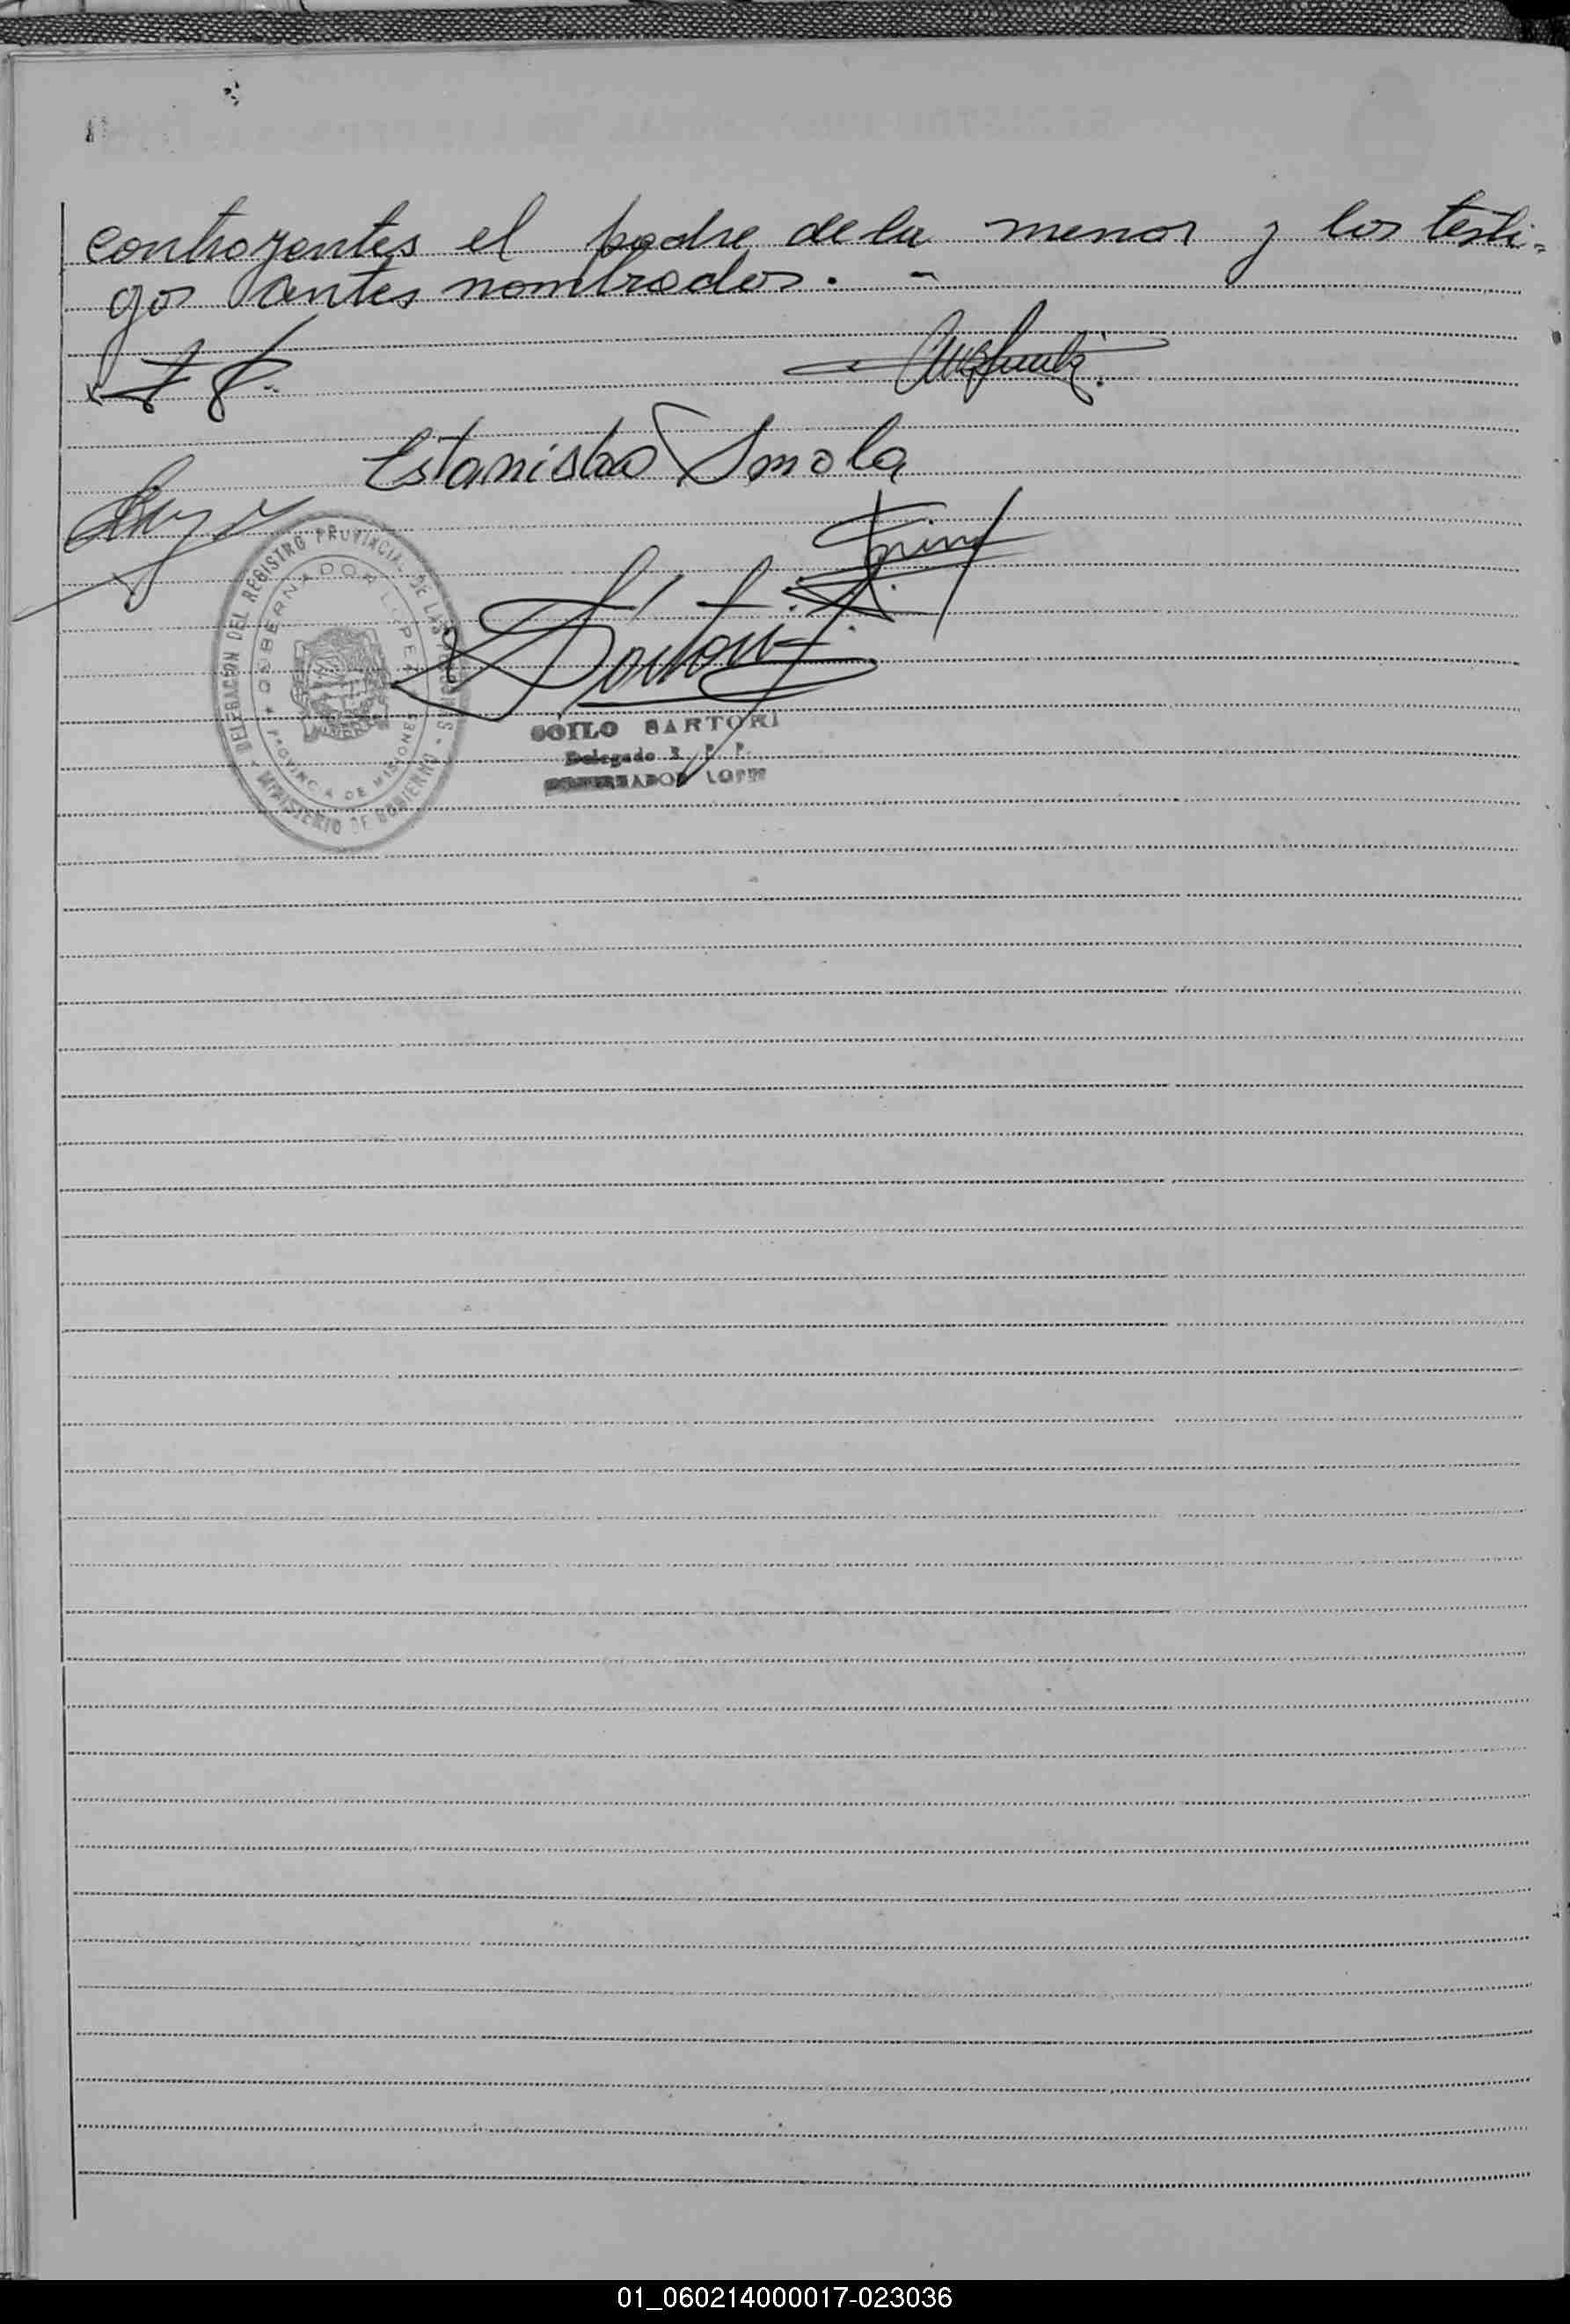 contrayentes el padre de la menor y los testi=
gos antes nombrados. -
Estanislao Smola
DELEGACIÓN DEL REGISTRO PROVINCIAL DE LAS PERSONAS - MINISTERIO DE GOBIERNO -
★ GOBERNADOR LOPEZ ★ PROVINCIA DE MISIONES
Sartori
SOILO SARTORI
Delegado R. P. P.
GOBERNADOR LOPEZ
01_060214000017-023036